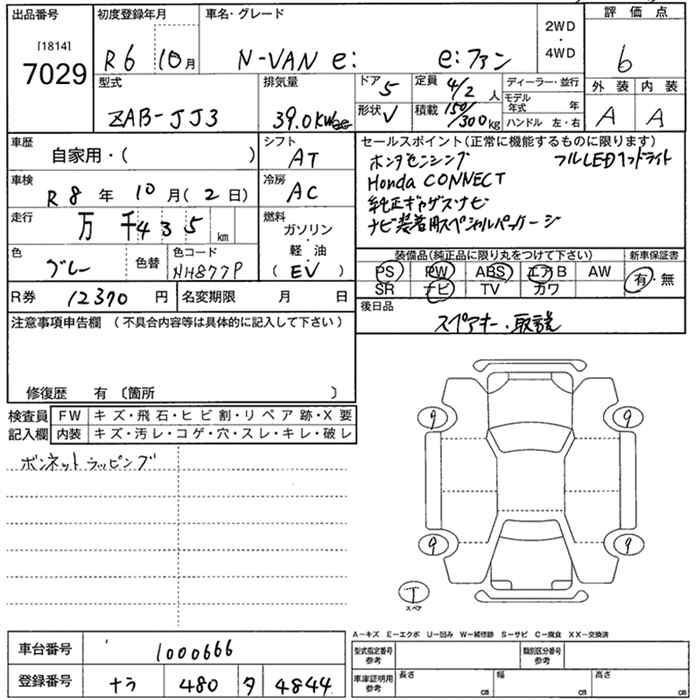 出品番号 初度登録年月 車名・グレード 2WD・4WD 評価点
[1814]
7029 R6 10月 N-VAN e: e:ファン 6
型式 排気量 ドア 5 定員 4/2人 ディーラー・並行 外装 内装
ZAB-JJ3 39.0kw 形状 V 積載 150/300kg モデル年式 年 A A
ハンドル 左・右
車歴 シフト セールスポイント(正常に機能するものに限ります)
自家用・( ) AT ホンダセンシング フルLEDヘッドライト
車検 冷房 Honda CONNECT
R8年 10月(2日) AC 純正ギャザズナビ
走行 燃料 ナビ装着用スペシャルパッケージ
万 千435km ガソリン・軽油(EV)
色 色替 色コード 装備品(純正品に限り丸をつけて下さい) 新車保証書
グレー NH877P PS PW ABS エアB AW 有・無
SR ナビ TV カワ
R券 12370円 名変期限 月 日 後日品
注意事項申告欄(不具合内容等は具体的に記入して下さい) スペアキー・取説
修復歴 有〔箇所 〕
検査員 FW キズ・飛石・ヒビ割・リペア跡・X要
記入欄 内装 キズ・汚レ・コゲ・穴・スレ・キレ・破レ
ボンネットラッピング
9 9
9 9
T
スペア
A-キズ E-エクボ U-凹み W-補修跡 S-サビ C-腐食 XX-交換済
車台番号 1000666 型式指定番号 参考 類別区分番号 参考
登録番号 ナラ 480 タ 4844 車庫証明用 参考 長さ cm 幅 cm 高さ cm